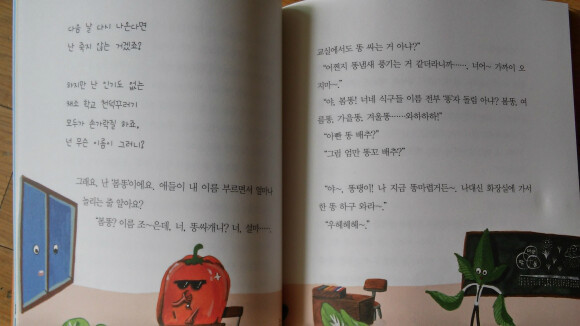 다음 날 다시 나온다면
난 죽지 않는 거겠죠?
하지만 난 인기도 없는
채소 학교 천덕꾸러기
모두가 손가락질 하죠.
넌 무슨 이름이 그러니?
그래요, 난 '봄똥'이에요. 애들이 내 이름 부르면서 얼마나
놀리는 줄 알아요?
"봄똥? 이름 조~은데, 너, 똥싸개니? 너, 설마…….
교실에서도 똥 싸는 거 아냐?"
"어쩐지 똥냄새 풍기는 거 같더라니까……, 너어~ 가까이 오
지마~."
"야, 봄똥! 너네 식구들 이름 전부 '똥'자 돌림 아냐? 봄똥, 여
름똥, 가을똥, 겨울똥……와하하하!"
"아빤 똥 배추?"
"그럼 엄만 똥꼬 배추?"
"야~, 똥탱이! 나 지금 똥마렵거든~. 나대신 화장실에 가서
한 똥 하구 와라~."
"우헤헤헤~."